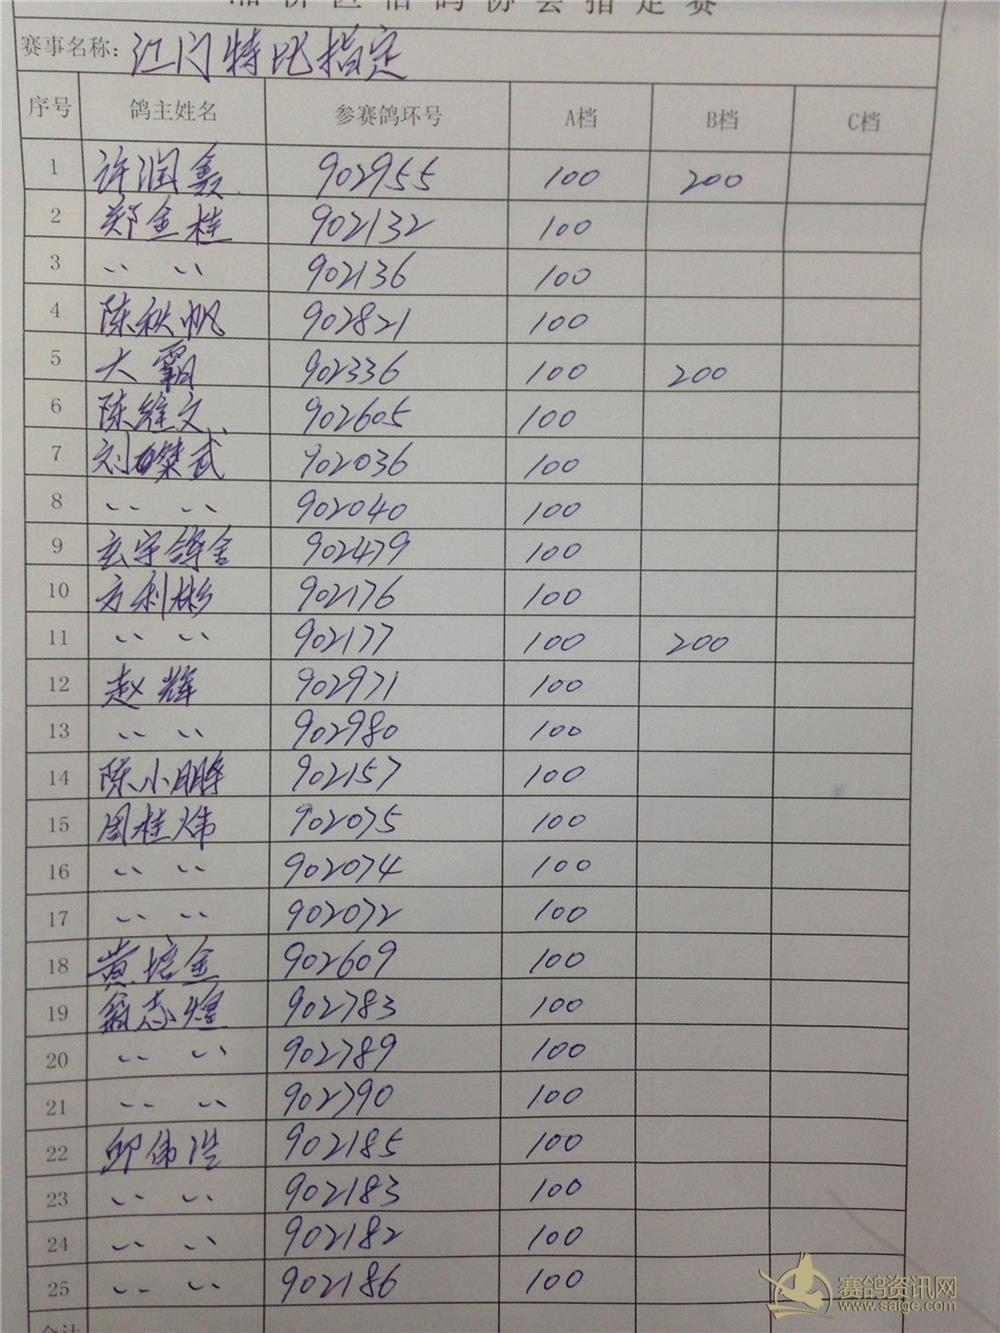 湘桥区信鸽协会指定赛
赛事名称：江门特比指定
序号 鸽主姓名 参赛鸽环号 A档 B档 C档
1 许润鑫 902955 100 200
2 郑金桂 902132 100
3 〃 〃 902136 100
4 陈秋帆 902821 100
5 大霸 902336 100 200
6 陈维文 902605 100
7 刘武 902036 100
8 〃 〃 902040 100
9 玄宇鸽舍 902479 100
10 方利彬 902176 100
11 〃 〃 902177 100 200
12 赵辉 902971 100
13 〃 〃 902980 100
14 陈小鹏 902157 100
15 周桂炜 902075 100
16 〃 〃 902074 100
17 〃 〃 902072 100
18 黄培金 902609 100
19 翁志煌 902783 100
20 〃 〃 902789 100
21 〃 〃 902790 100
22 邱伟浩 902185 100
23 〃 〃 902183 100
24 〃 〃 902182 100
25 〃 〃 902186 100
合计
赛鸽资讯网
www.saige.com